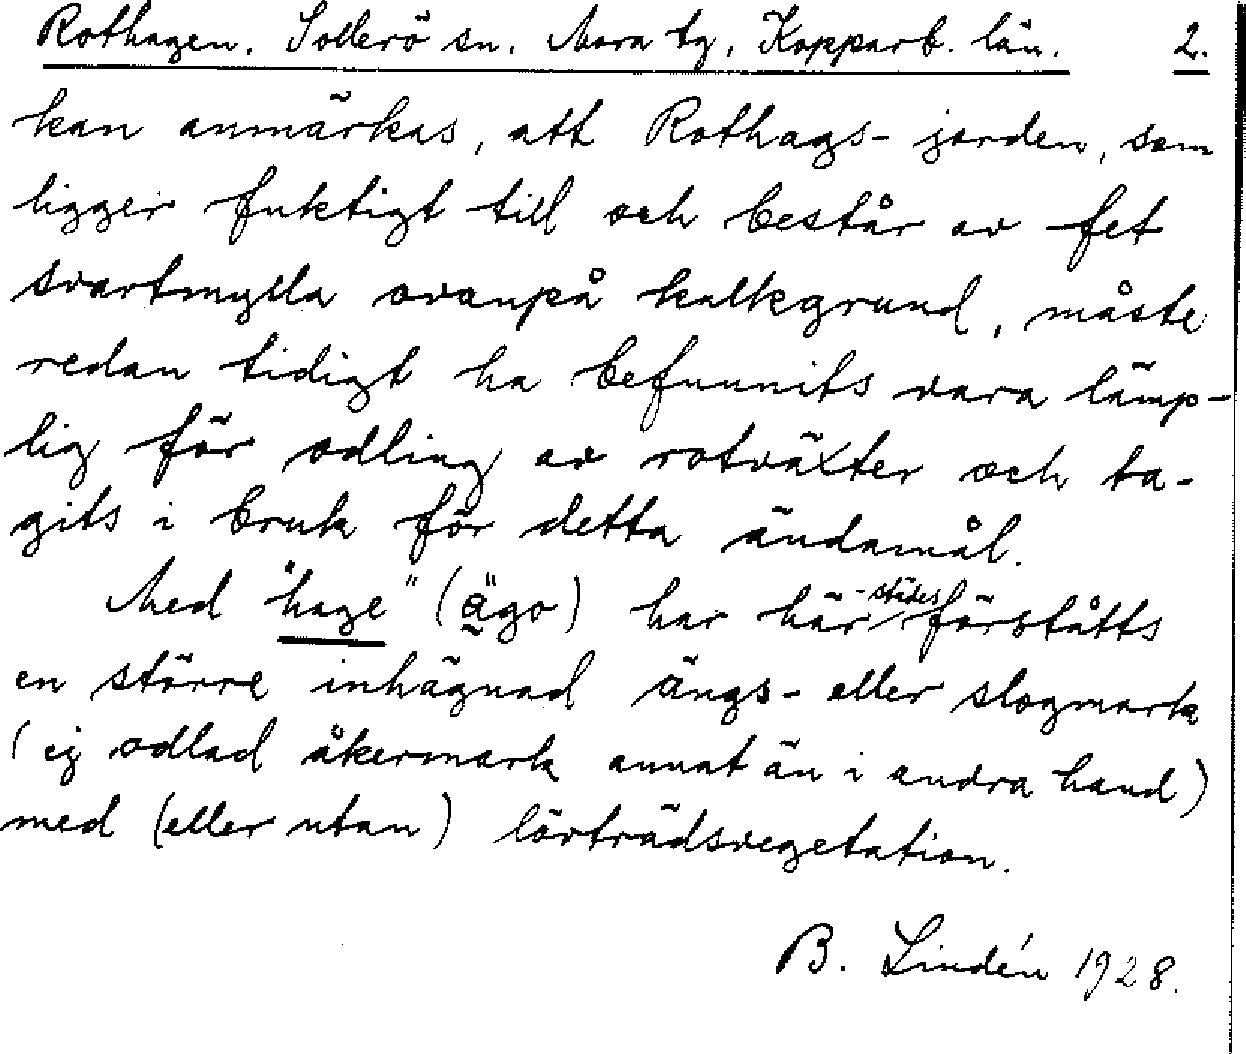 Rothagen. Sollerö sn. Mora tg, Kopparb. län. 2.
kan anmärkas, att Rothags-jorden, som
ligger fuktigt till och består av fet
svartmylla ovanpå kalkgrund, måste
redan tidigt ha befunnits vara lämp-
lig för odling av rotväxter och ta-
gits i bruk för detta ändamål.
Med "hage" (ägo) har här-städes förståtts
en större inhägnad ängs- eller slogmark
(ej odlad åkermark annat än i andra hand)
med (eller utan) lövträdsvegetation.
B. Lindén 1928.